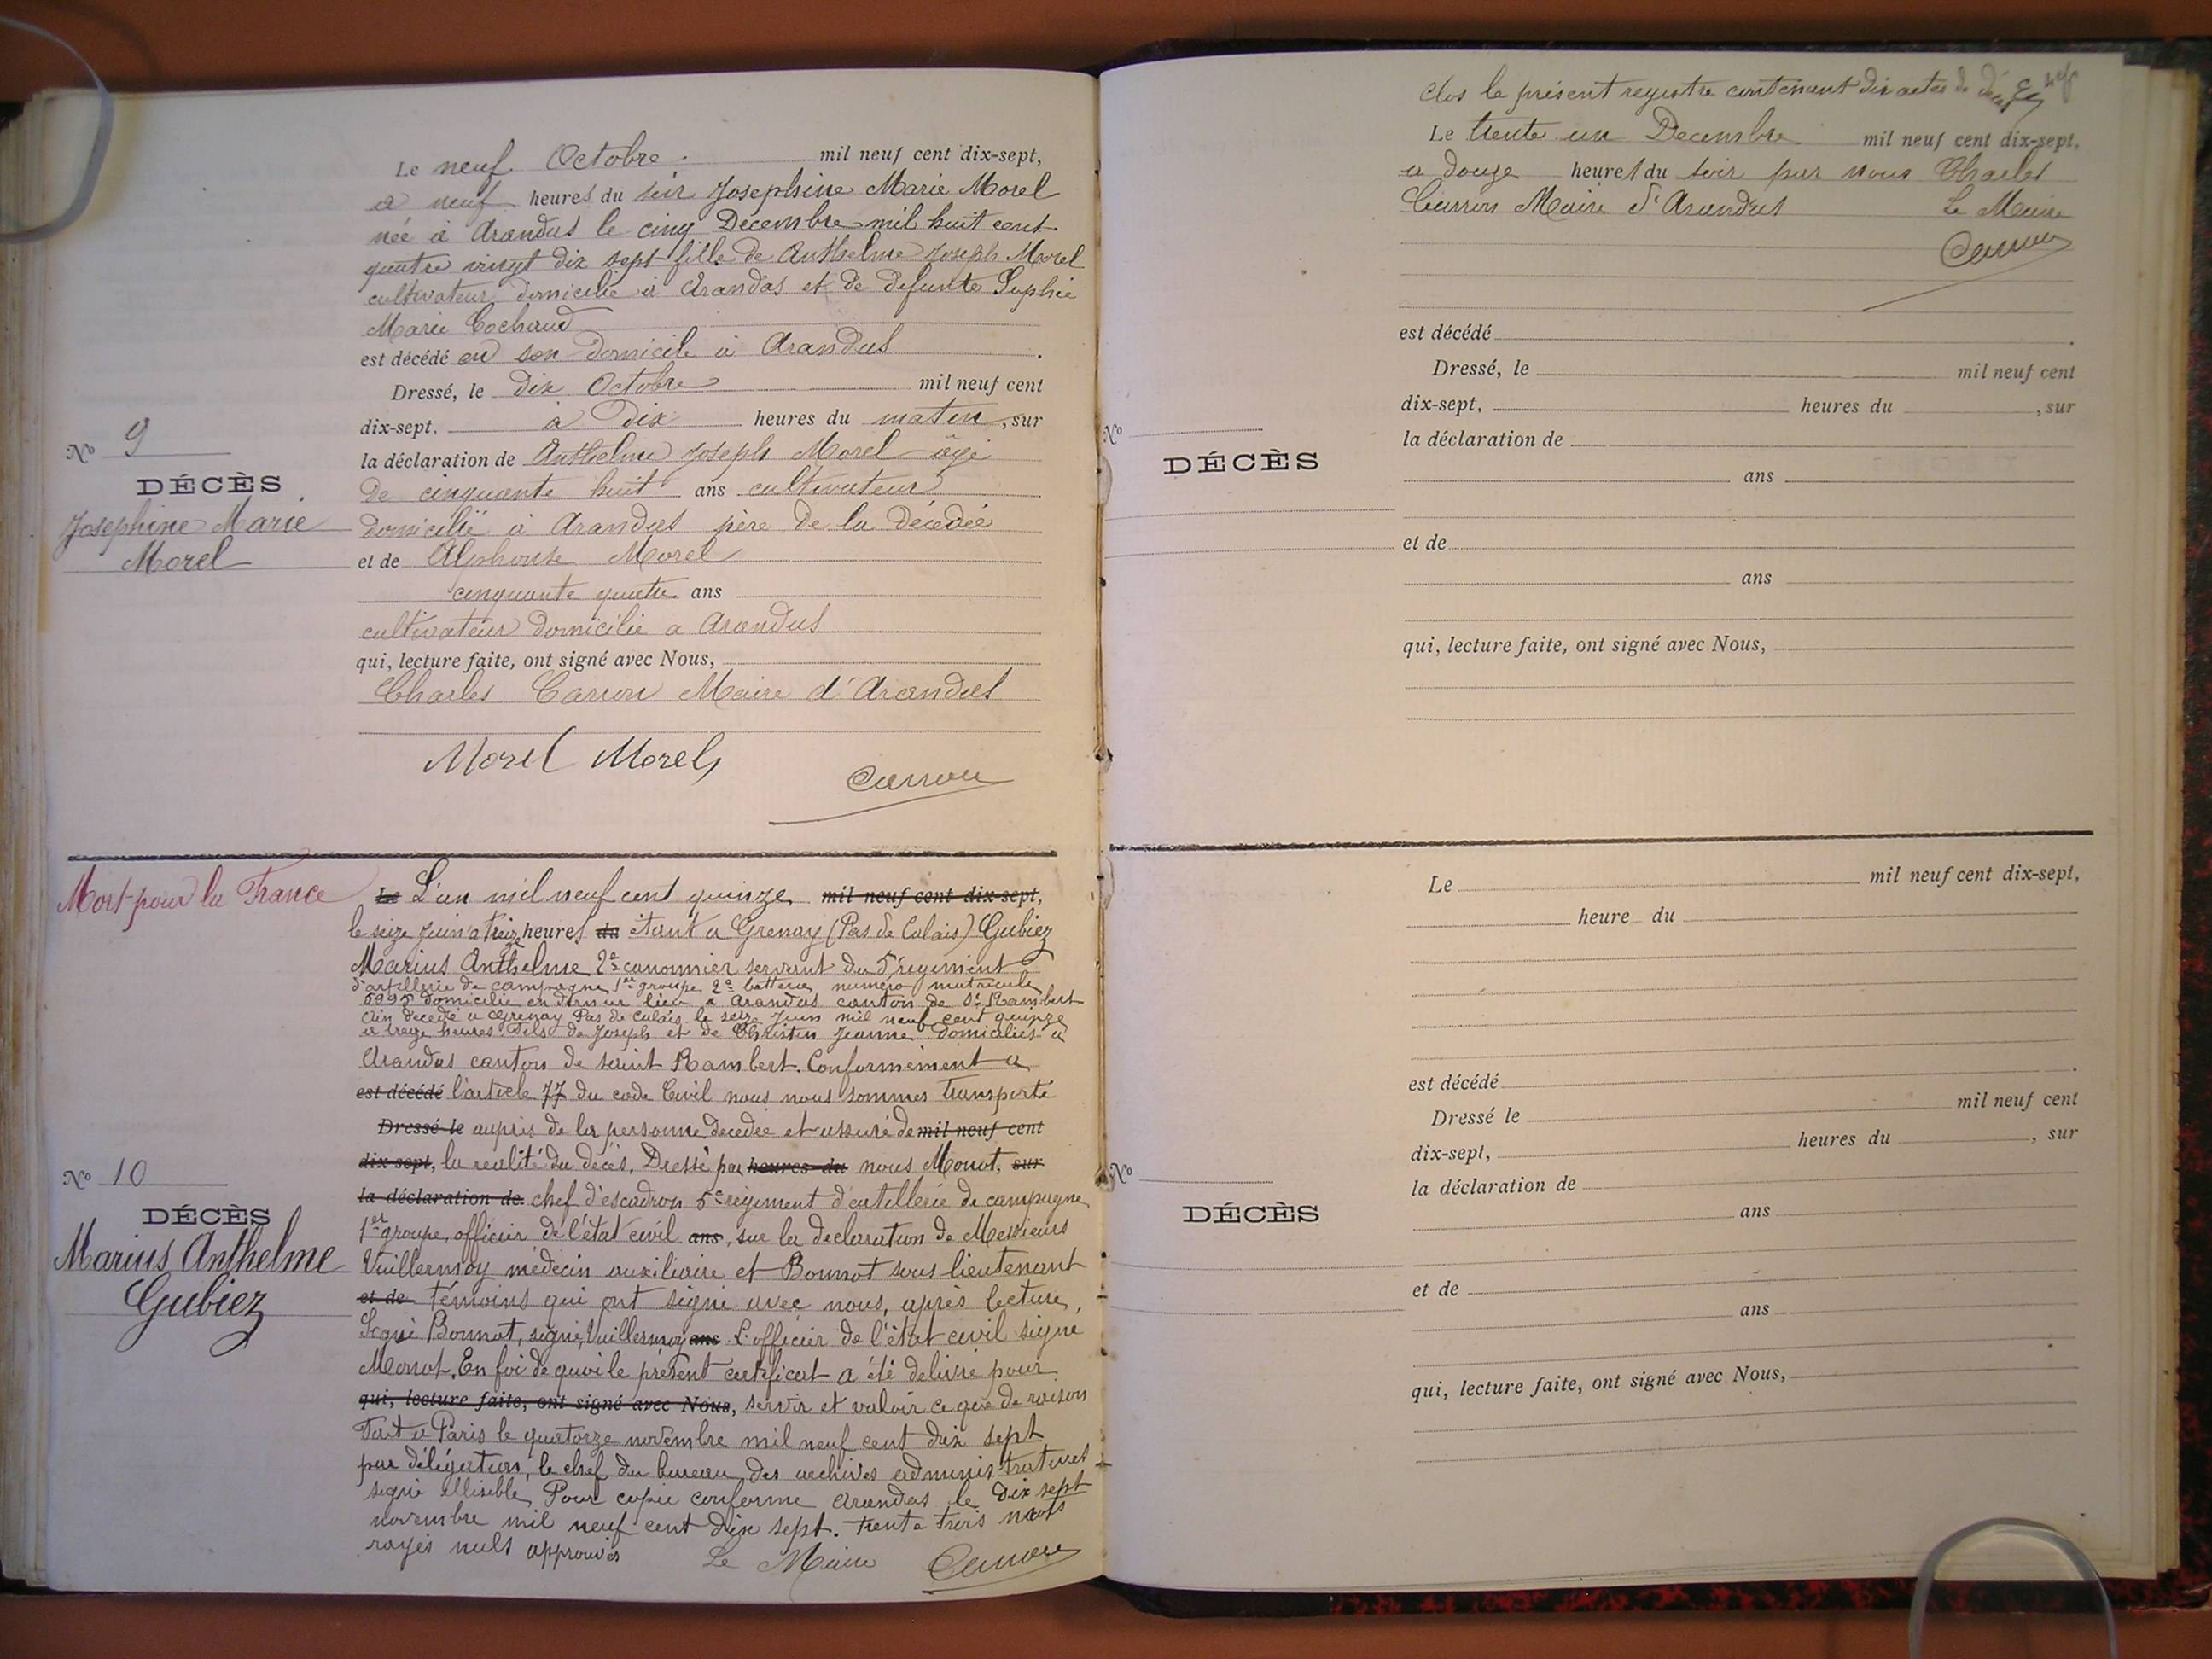 Le neuf Octobre mil neuf cent dix-sept,
a neuf heures du soir Josephine Marie Morel
née à Arandas le cinq Décembre mil huit cent
quatre vingt dix sept fille de Anthelme Joseph Morel
cultivateur domicilié à Arandas et de defunte Sophie
Marie Cochaud
est décédé en son domicile à Arandas.
Dressé, le dix Octobre mil neuf cent
dix-sept, à Dix heures du matin, sur
la déclaration de Anthelme Joseph Morel âgé
de cinquante huit ans cultivateur
domicilié à Arandas père de la décédée
et de Alphonse Morel
cinquante quatre ans
cultivateur domicilié a Arandas
qui, lecture faite, ont signé avec Nous,
Charles Carron Maire d'Arandas
Morel Morel
Carron
No 9
DÉCÈS
Josephine Marie
Morel
Mort pour la France
Le L'an mil neuf cent quinze mil neuf cent dix-sept,
le seize Juin a treize heures du étant a Grenay (Pas de Calais) Gubiez
Marius Anthelme 2e canonnier servant du 5e regiment
d'artillerie de campagne 1er groupe 2e batterie numéro matricule
5995 domicilié en dernier lieu a Arandas canton de St Rambert
Ain décédé a Grenay Pas de Calais le seize Juin mil neuf cent quinze
a treize heures Fils de Joseph et de Christin Jeanne domiciliés a
Arandas canton de saint Rambert. Conformément a
est décédé l'article 77 du code Civil nous nous sommes transporté
Dressé le auprès de la personne décédée et assuré de mil neuf cent
dix-sept, la realité du décès. Dressé par heures du nous Monot, sur
la déclaration de chef d'escadron 5e régiment d'artillerie de campagne
1er groupe, officier de l'état civil ans, sur la déclaration de Messieurs
Vuillermoy médecin auxiliaire et Bonnot sous lieutenant
et de témoins qui ont signé avec nous, après lecture,
Signé Bonnot, signé, Vuillermoy ans L'officier de l'état civil signé
Monot. En foi de quoi le présent certificat a été delivré pour
qui, lecture faite, ont signé avec Nous, servir et valoir ce que de raison
Fait a Paris le quatorze novembre mil neuf cent dix sept
par délégation, le chef du bureau des archives administratives
signé illisible Pour copie conforme Arandas le dix sept
novembre mil neuf cent dix sept. trente trois mots
rayés nuls approuvés Le Maire Carron
No 10
DÉCÈS
Marius Anthelme
Gubiez
Clos le présent registre contenant dix actes de décès
Le trente un Decembre mil neuf cent dix-sept,
a douze heures du soir par nous Charles
Carron Maire d'Arandas Le Maire
Carron
est décédé
Dressé, le mil neuf cent
dix-sept, heures du , sur
la déclaration de
ans
et de
ans
qui, lecture faite, ont signé avec Nous,
No
DÉCÈS
Le mil neuf cent dix-sept,
heure du
est décédé
Dressé le mil neuf cent
dix-sept, heures du , sur
la déclaration de
ans
et de
ans
qui, lecture faite, ont signé avec Nous,
No
DÉCÈS